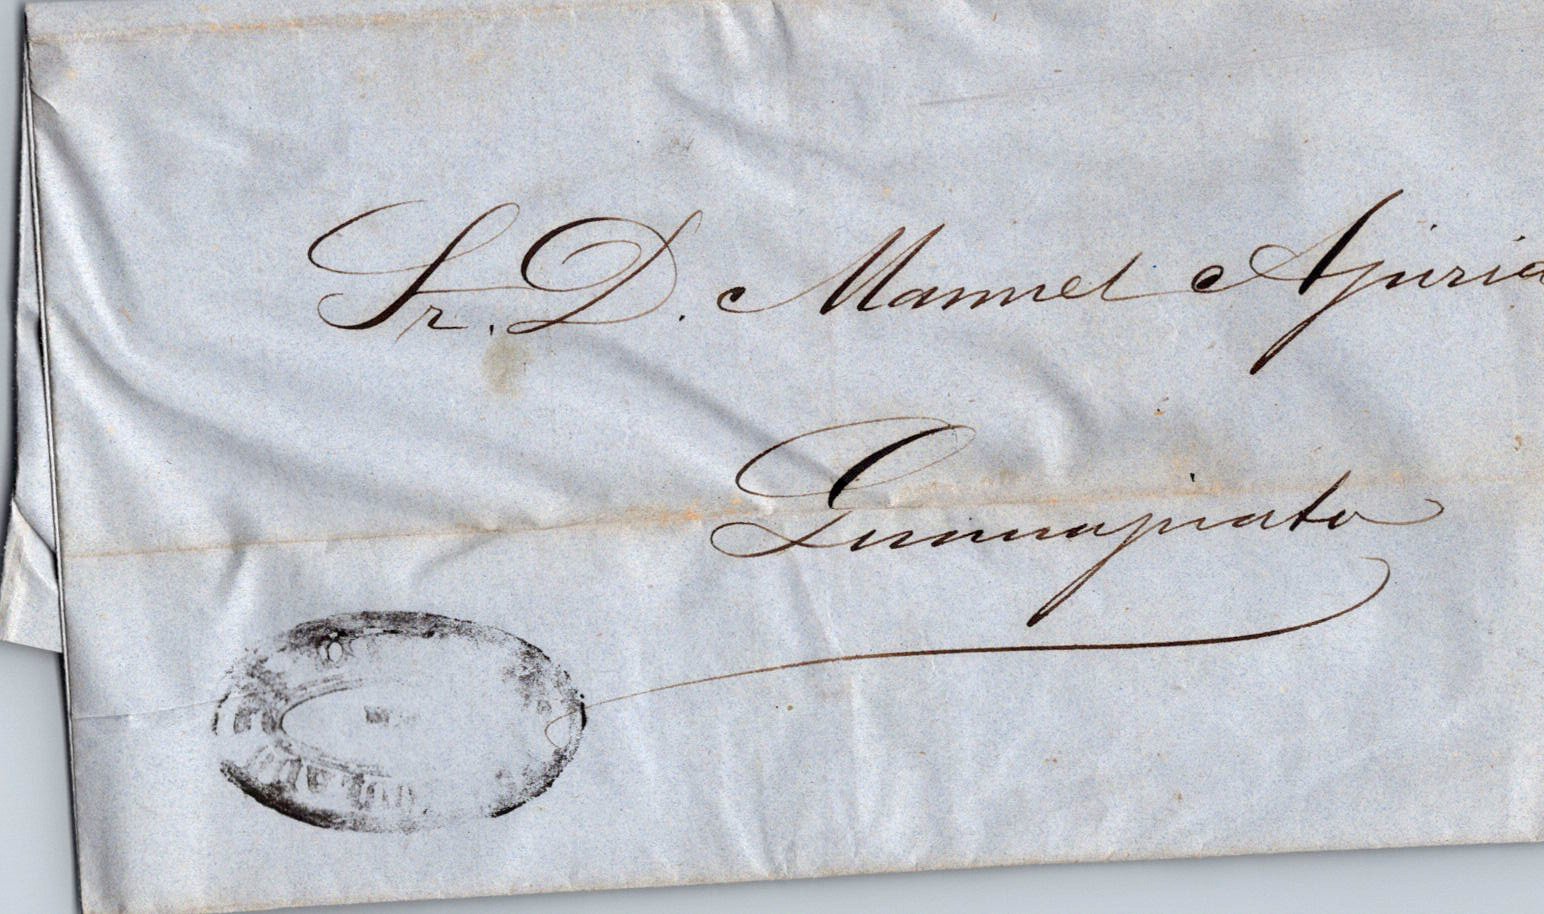 Sr. D. Manuel Ajuria
Guanajuato